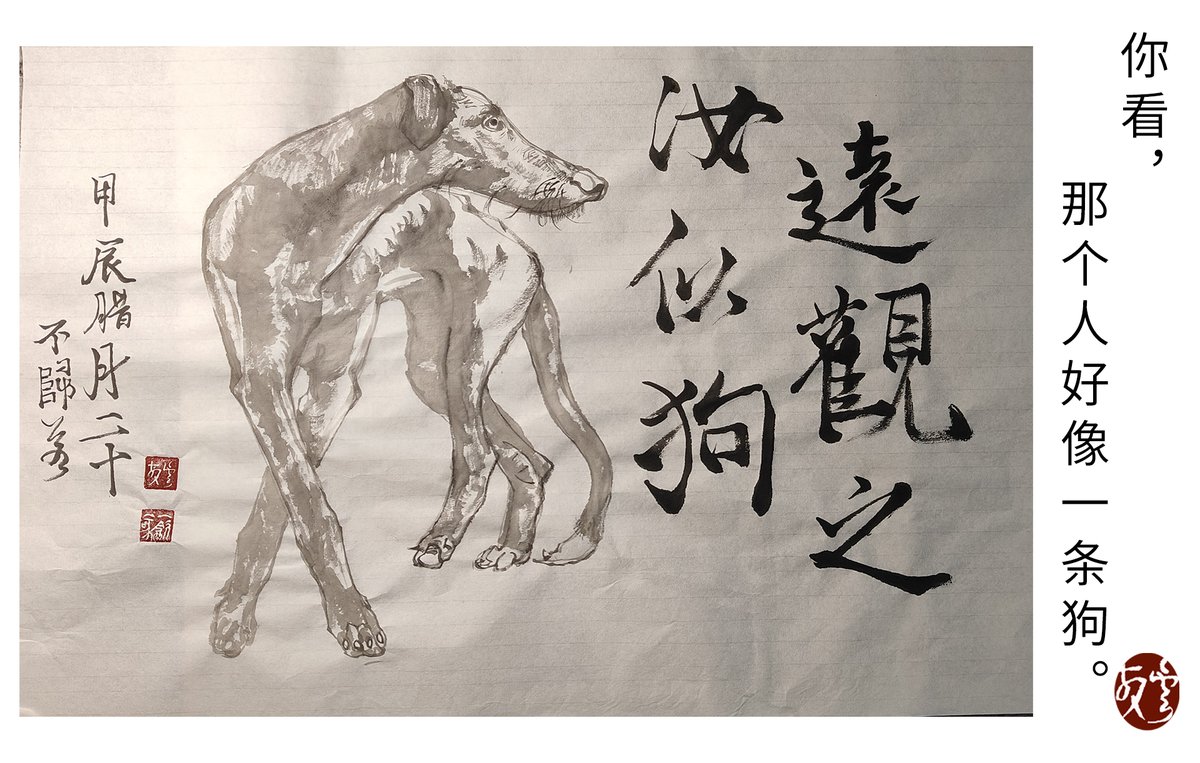 你看，
那个人好像一条狗。
遠觀之
汝似狗
甲辰腊月二十
不歸